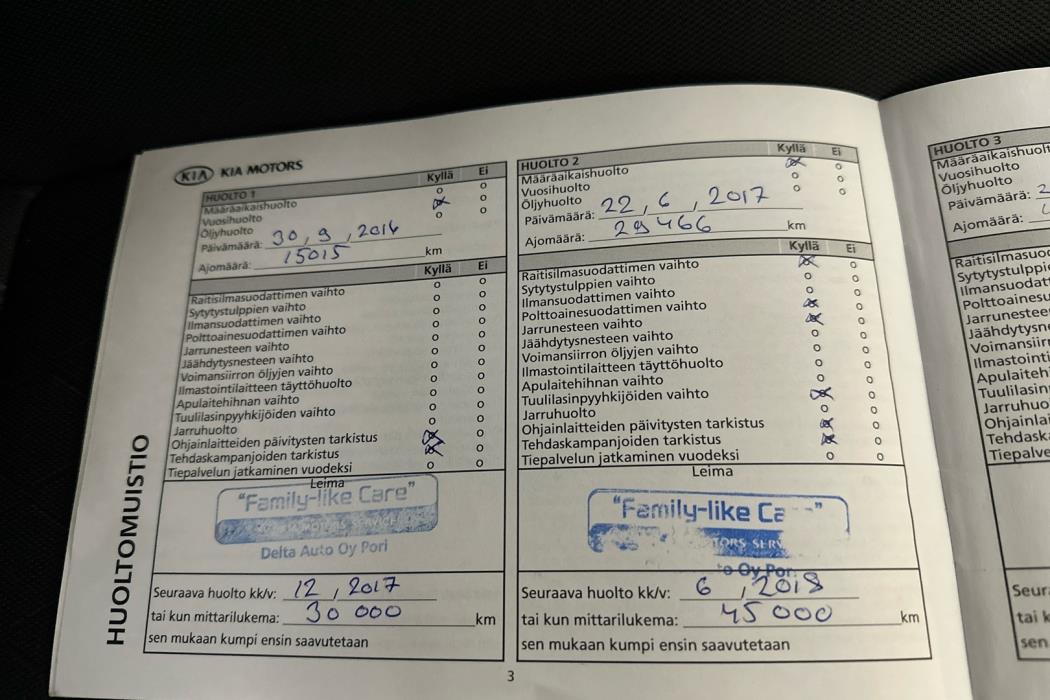 KIA KIA MOTORS
HUOLTO 1 Kyllä Ei
Määräaikaishuolto o o
Vuosihuolto o
Öljyhuolto o o
Päivämäärä: 30, 9, 2016
Ajomäärä: 15015 km
Kyllä Ei
Raitisilmasuodattimen vaihto o o
Sytytystulppien vaihto o o
Ilmansuodattimen vaihto o o
Polttoainesuodattimen vaihto o o
Jarrunesteen vaihto o o
Jäähdytysnesteen vaihto o o
Voimansiirron öljyjen vaihto o o
Ilmastointilaitteen täyttöhuolto o o
Apulaitehihnan vaihto o o
Tuulilasinpyyhkijöiden vaihto o o
Jarruhuolto o o
Ohjainlaitteiden päivitysten tarkistus o
Tehdaskampanjoiden tarkistus o
Tiepalvelun jatkaminen vuodeksi o o
Leima
"Family-like Care"
Delta Auto Oy Pori
Seuraava huolto kk/v: 12, 2017
tai kun mittarilukema: 30 000 km
sen mukaan kumpi ensin saavutetaan
HUOLTOMUISTIO
HUOLTO 2 Kyllä Ei
Määräaikaishuolto o
Vuosihuolto o o
Öljyhuolto o o
Päivämäärä: 22, 6, 2017
Ajomäärä: 29466 km
Kyllä Ei
Raitisilmasuodattimen vaihto o
Sytytystulppien vaihto o o
Ilmansuodattimen vaihto o o
Polttoainesuodattimen vaihto o
Jarrunesteen vaihto o
Jäähdytysnesteen vaihto o o
Voimansiirron öljyjen vaihto o o
Ilmastointilaitteen täyttöhuolto o o
Apulaitehihnan vaihto o o
Tuulilasinpyyhkijöiden vaihto o
Jarruhuolto o o
Ohjainlaitteiden päivitysten tarkistus o
Tehdaskampanjoiden tarkistus o
Tiepalvelun jatkaminen vuodeksi o o
Leima
"Family-like Ca "
TORS SERV
o Oy Pori
Seuraava huolto kk/v: 6, 2018
tai kun mittarilukema: 45 000 km
sen mukaan kumpi ensin saavutetaan
3
HUOLTO 3
Määräaikaishuolt
Vuosihuolto
Öljyhuolto
Päivämäärä: 2
Ajomäärä:
Raitisilmasuod
Sytytystulppie
Ilmansuodatt
Polttoainesu
Jarrunestee
Jäähdytysn
Voimansiirr
Ilmastointi
Apulaiteh
Tuulilasin
Jarruhuo
Ohjainlai
Tehdask
Tiepalve
Seur
tai k
sen